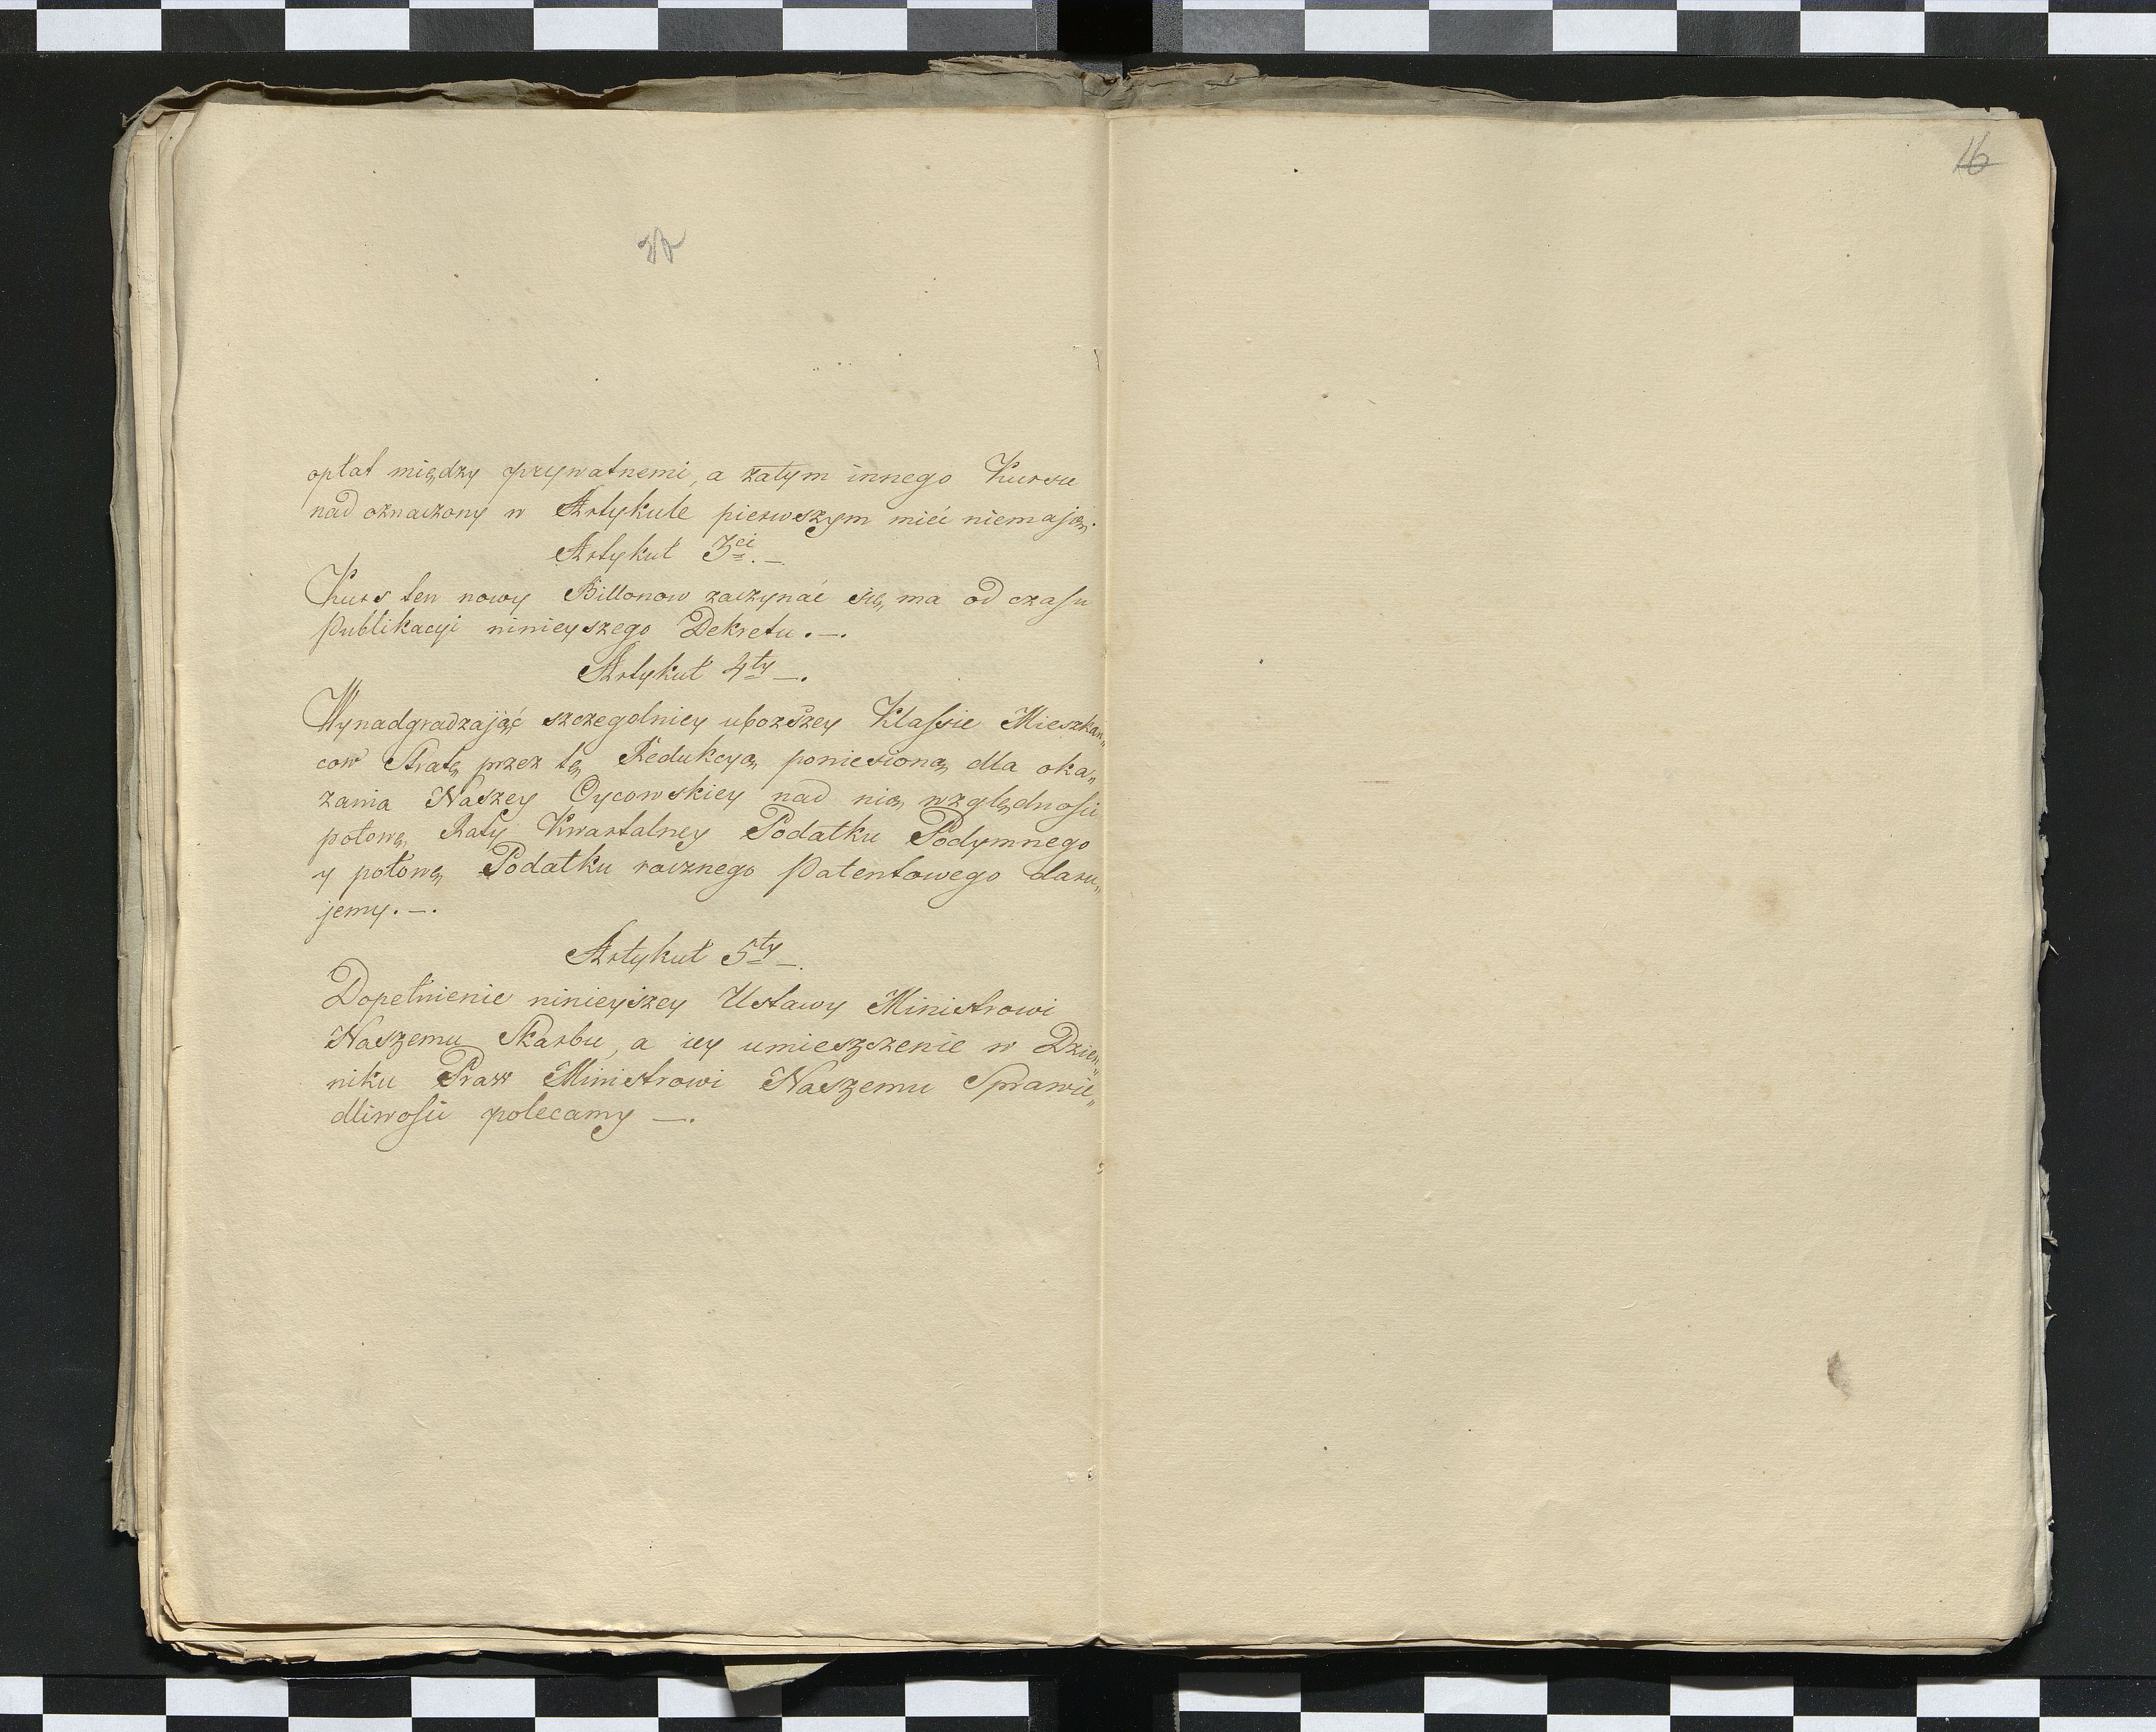 opłat między prywatnemi, a zatym innego Kursu
nad oznaczony w Artykule pierwszym mieć niemają.
Artykuł 3ci. —
Kurs ten nowy Billonow zaczynać się ma od czasu
Publikacyi ninieyszego Dekretu. —.
Artykuł 4ty —.
Wynadgradzaiąć szczegolniey uboższey Klassie Mieszkań„
cow Stratę przez tę Redukcyą poniesioną dla oka„
zania Naszey Oycowskiey nad nią względności
połowę Raty Kwartalney Podatku Podymnego
y połowę Podatku rocznego Patentowego daru„
jemy. —.
Artykuł 5ty —.
Dopełnienie ninieyszey Ustawy Ministrowi
Naszemu Skarbu, a iey umieszczenie w Dzien„
niku Praw Ministrowi Naszemu Sprawie„
dliwości polecamy —.
16